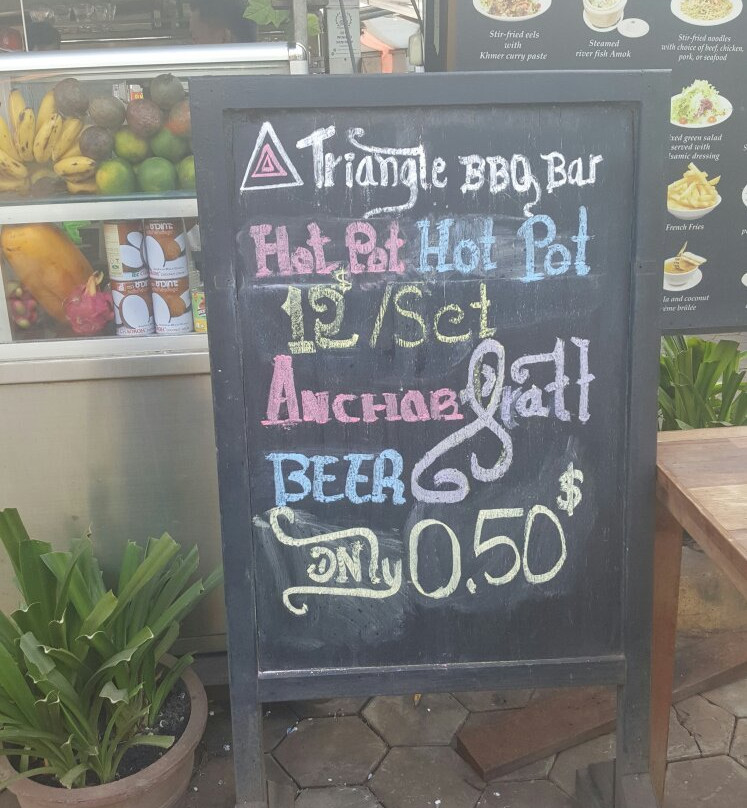 Triangle BBQ Bar
Hot Pot Hot Pot
12$/Set
ANCHOR Dratt
BEER
ONly 0.50$
Stir-fried eels
with
Khmer curry paste
Steamed
river fish Amok
Stir-fried noodles
with choice of beef, chicken,
pork, or seafood
xed green salad
served with
samic dressing
French Fries
la and coconut
ème brûlée